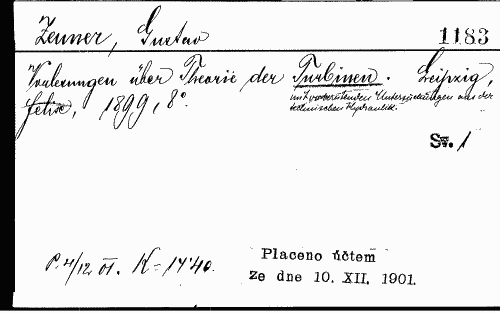 Zeuner, Gustav 1183
Vorlesungen über Theorie der Turbinen. Leipzig,
mit vorbereitenden Untersuchungen aus der
technischen Hydraulik.
Felix, 1899, 8°.
Sv. 1
P. 4/12. 01. K = 17'40.
Placeno účtem
Ze dne 10. XII. 1901.